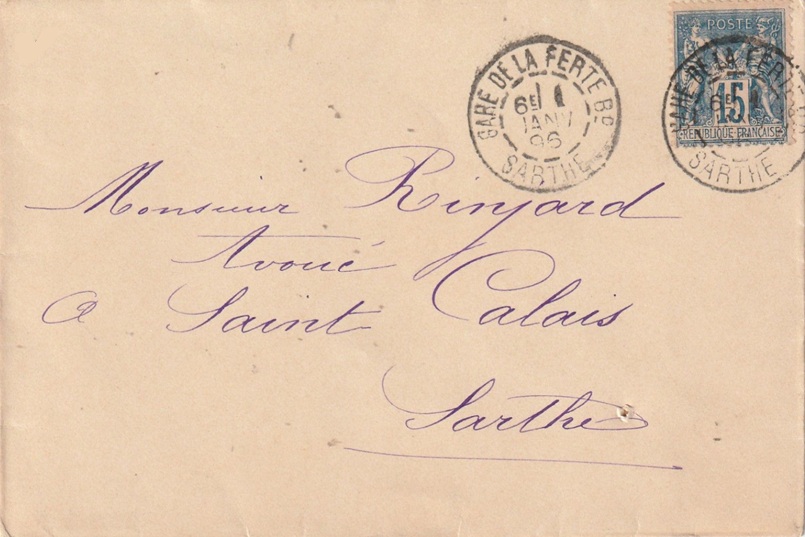 GARE DE LA FERTE BD
6E 1
JANV
96
SARTHE
POSTE
15
REPUBLIQUE FRANÇAISE
GARE DE LA FERTE
6E
SARTHE
Monsieur Rinjard
Avoué
à Saint Calais
Sarthe